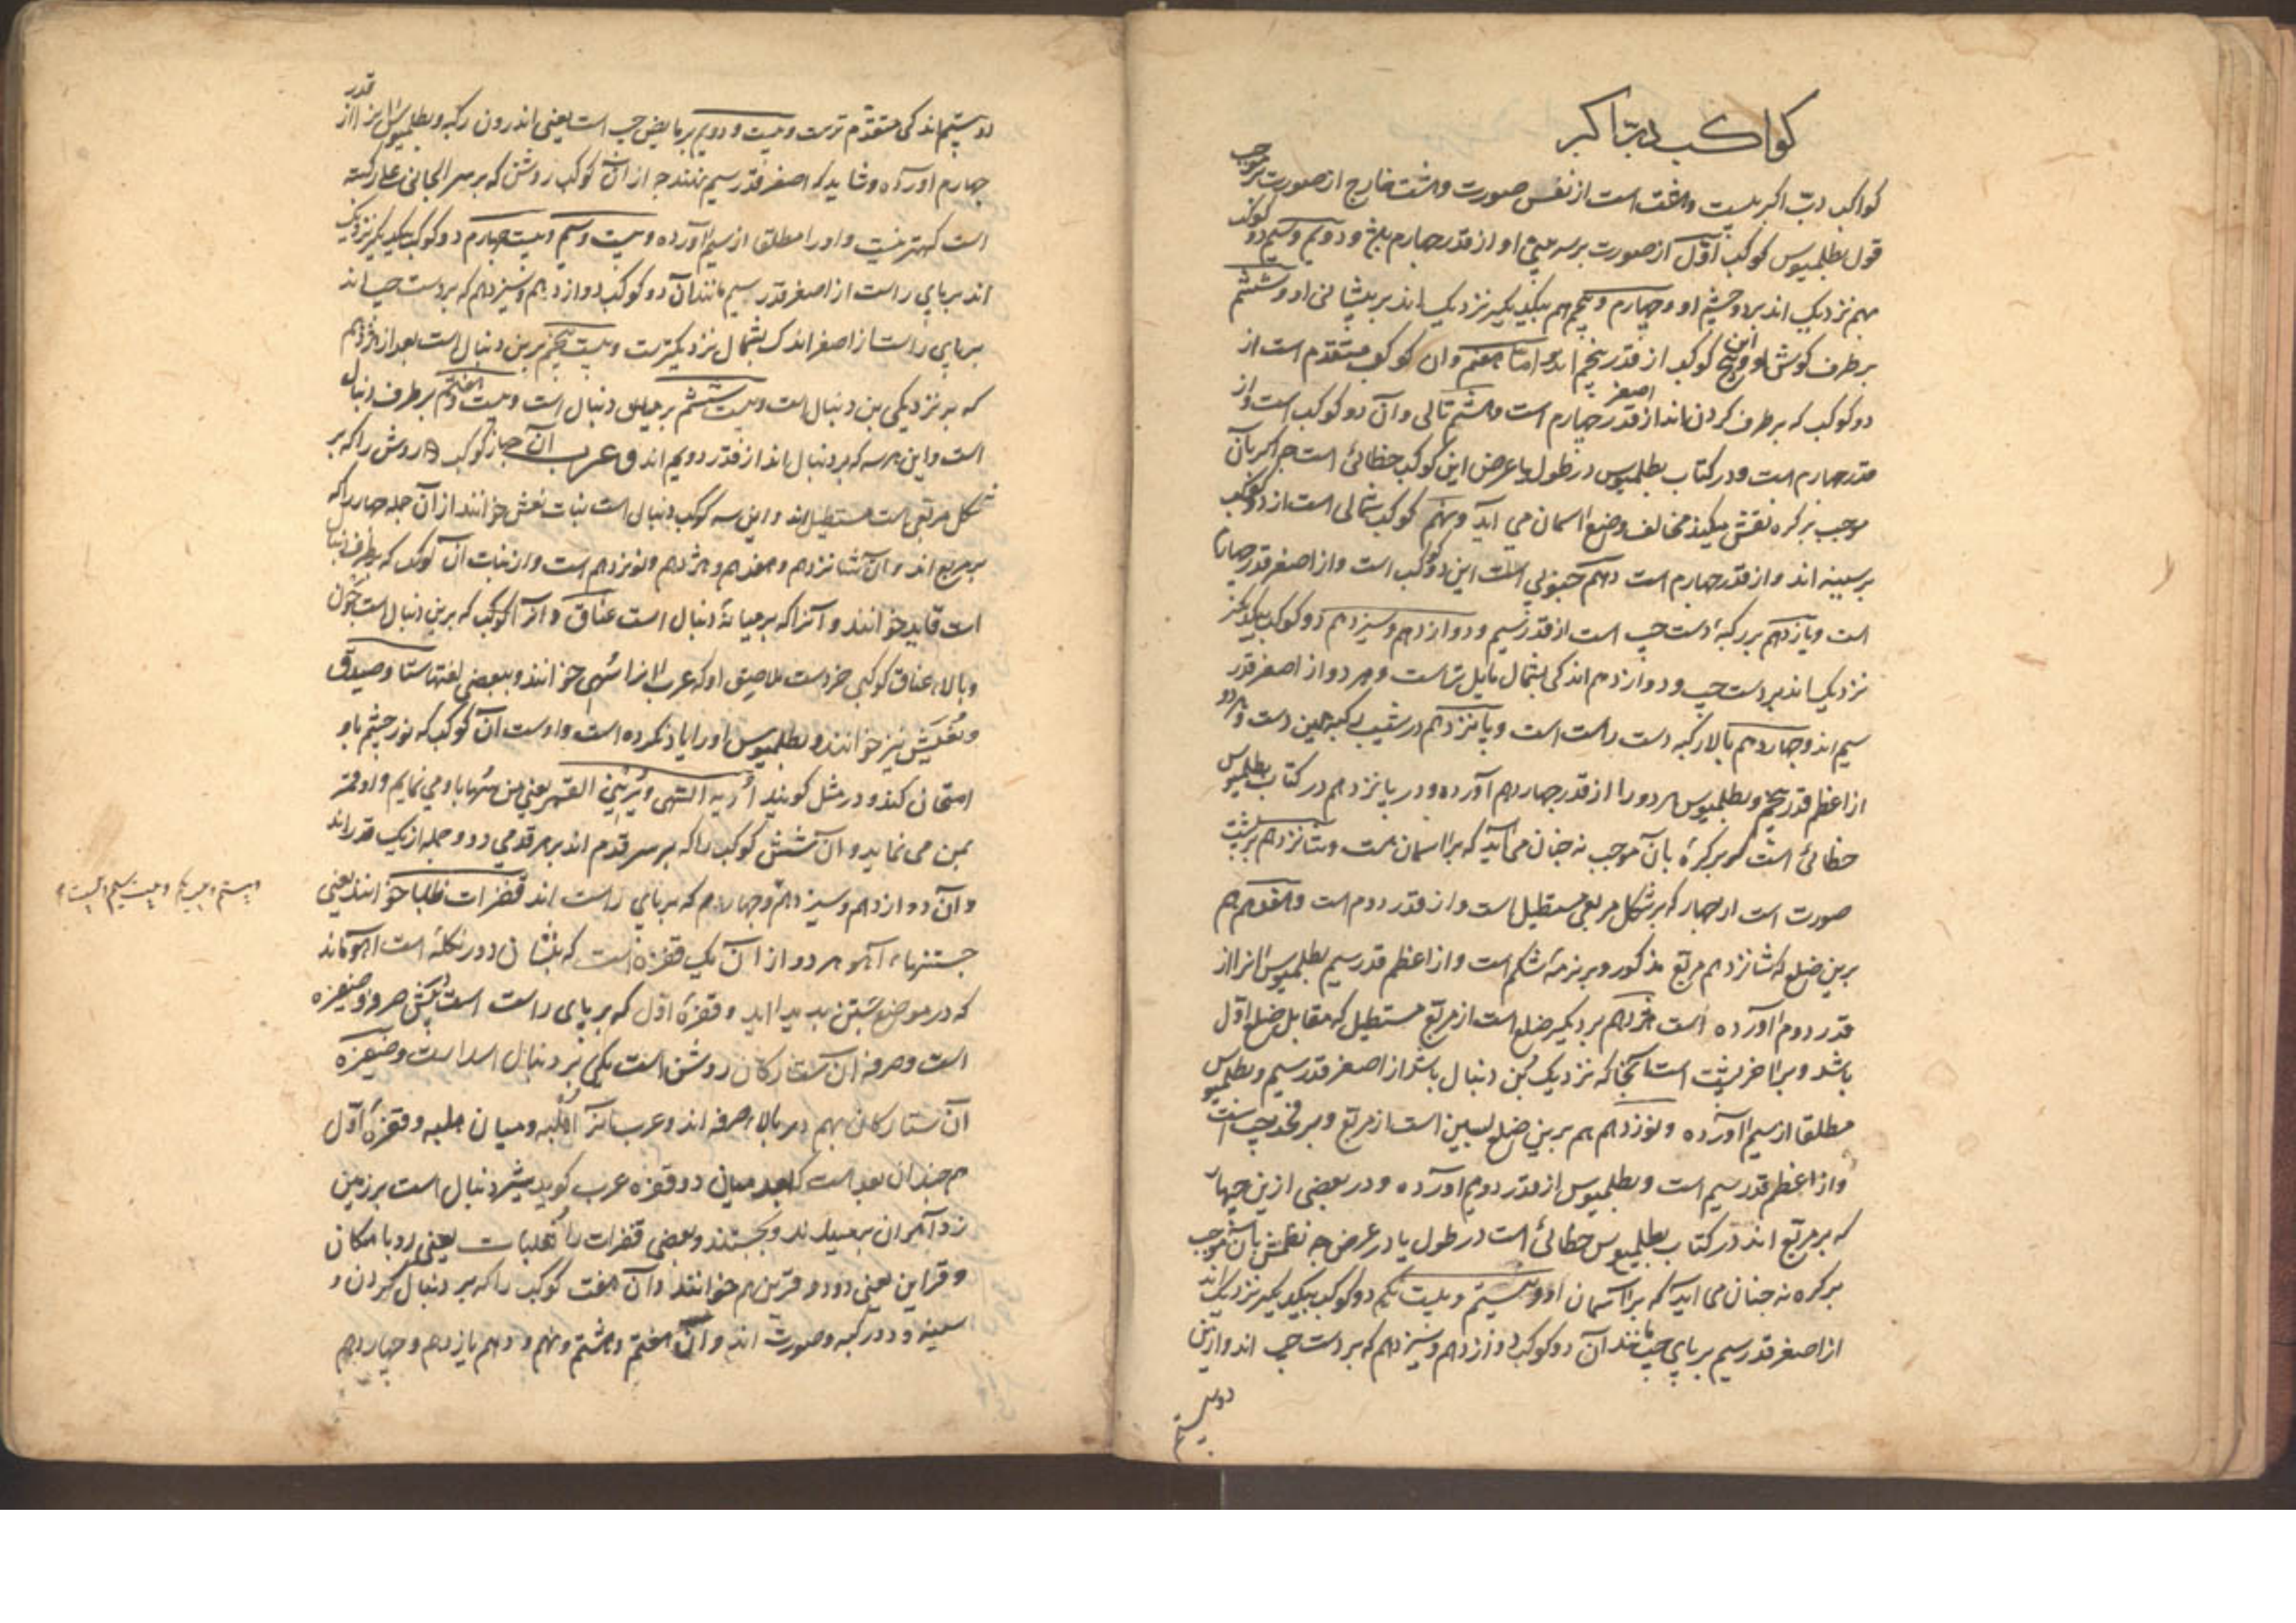 کواکب دب اکبر
کواکب دب اکبر بیست و هفت است از نفس صورت و هشت خارج از صورت بر موجب
قول بطلمیوس کوکب اول از صورت بر سر بینی او از قدر چهارم و دویم و سیم دو کوکب
بهم نزدیک اند بر دو چشم او و چهارم و پنجم هم بیکدیگر نزدیک اند بر پیشانی او و ششم
بر طرف کوش او و این پنج کوکب از قدر پنجم اند و اما هفتم و ان کوکب متقدم است از
دو کوکب که بر طرف کردن اند از اصغر قدر چهارم است و هشتم تالی و آن دو کوکب است و از
قدر چهارم است و در کتاب بطلمیوس در طول یا عرض این کوکب خطائی است چه اکر بآن
موجب بر کره نقش میکنند مخالف وضع اسمان می آید و نهم کوکب شمالی است از دو کوکب
بر سینه اند و از قدر چهارم است دهم جنوبی است این دو کوکب است و از اصغر قدر چهارم
است و یازدهم بر رکبه دست چپ است از قدر سیم و دوازدهم و سیزدهم دو کوکب بیکدیکر
نزدیک اند بر دست چپ و دوازدهم اندکی بشمال مایل تر است و هر دو از اصغر قدر
سیم اند و چهاردهم بالا رکبه دست راست است و پانزدهم در شیب رکبه همین دست و هر دو
از اعظم قدر پنجم و بطلمیوس هر دو را از قدر چهارم آورده و در پانزدهم در کتاب بطلمیوس
خطائی است که بر کره بآن موجب نه چنان می آید که بر اسمان هست و شانزدهم بر پشت
صورت است از چهار که بر شکل مربعی مستطیل است و از قدر دوم است و هفدهم هم
برین ضلع که شانزدهم مربع مذکور و بر نرمه شکم است و از اعظم قدر سیم بطلمیوس انرا از
قدر دوم آورده است هژدهم بر دیکر ضلع است از مربع مستطیل که مقابل ضلع اول
باشد و بر اخر پشت است آنجا که نزدیک بن دنبال باشد از اصغر قدر سیم و بطلمیوس
مطلقا از سیم آورده و نوزدهم هم برین ضلع پسین است از مربع و بر فخذ چپ است
و از اعظم قدر سیم است و بطلمیوس از قدر دویم آورده و در بعضی ازین چهار
که بر مربع اند در کتاب بطلمیوس خطائی است در طول یا در عرض چه نقش بآن موجب
بر کره نه چنان می اید که بر اسمان اند و بیستم و بیست یکم دو کوکب بیکدیکر نزدیک اند
از اصغر قدر سیم بر پای چپ مانند آن دو کوکب دوازدهم و سیزدهم که بر دست چپ اند و ازین
دو بیستم
دو بیستم اندکی متقدم ترست و بیست و دویم بر مابض چپ است یعنی اندرون رکبه و بطلمیوس انرا از قدر
چهارم آورده و شاید که اصغر قدر سیم نهند چه از آن کوکب روشن که بر سر الجاثی علی رکبته
است کهتر نیست و او را مطلقا از سیم آورده و بیست و سیم و بیست چهارم دو کوکب بیکدیکر نزدیک
اند بر پای راست از اصغر قدر سیم مانند آن دو کوکب دوازدهم و سیزدهم که بر دست چپ اند
بر پای راست از اصغر اندک بشمال نزدیکترست و بیست پنجم برین دنبال است بعد از هژدهم
که بر نزدیکی بن دنبال است و بیست ششم بر میان دنبال است و بیست و هفتم بر طرف دنبال
است و این هر سه که بر دنبال اند از قدر دویم اند و عرب آن چهار کوکب روشن را که بر
شکل مربعی است مستطیل اند و این سه کوکب دنبال است بنات نعش خوانند از آن جمله چهار را که
بر مربع اند و آن شانزدهم و هفدهم و هژدهم و نوزدهم است و از بنات آن کوکب که بر طرف دنبال
است قاید خوانند و آنرا که بر میانه دنبال است عناق و انرا کوکب که برین دنبال است جون
و بالاء عناق کوکبی خردست ملاصق او که عرب انرا سهی خوانند و ببعضی لغتها ستا و صیدق
و نعیش نیز خوانند و بطلمیوس او را یاد نکرده است و اوست آن کوکب که نور چشم باو
امتحان کنند و در مثل کویند اریه السهی و یرینی القمر یعنی من سها باو می نمایم و او قمر
بمن می نماید و آن شش کوکب را که بر سر قدم اند بر هر قدمی دو و جمله از یک قدر اند
و آن دوازدهم و سیزدهم و چهاردهم که بر پای راست اند قفزات ظلبا خوانند یعنی
جستنهاء آهو هر دو از آن یک قفزه است که بنشان دو در نکله است آهو ماند
که در موضع جستن پدید اید و قفزه اول که بر پای راست است پیش صرفه و ضفیره
است و صرفه آن ستارکان روشن است یکی بر دنبال اسد است و ضفیره
آن ستارکان بهم در بالاء صرفه اند و عرب انرا هلبه و میان هلبه و قفزه اول
هم چندان بعد است که بعد میان دو قفزه عرب کوید شیر دنبال است بر زمین
زد آهوان برمیدند و بجستند و بعضی قفزات را ثعلبات یعنی روباهکان
و قراین یعنی دو دو قرین هم خوانند و آن هفت کوکب را که بر دنبال کردن و
سینه و دو رکبه و صورت اند و آن هفتم و هشتم و نهم و دهم یازدهم و چهاردهم